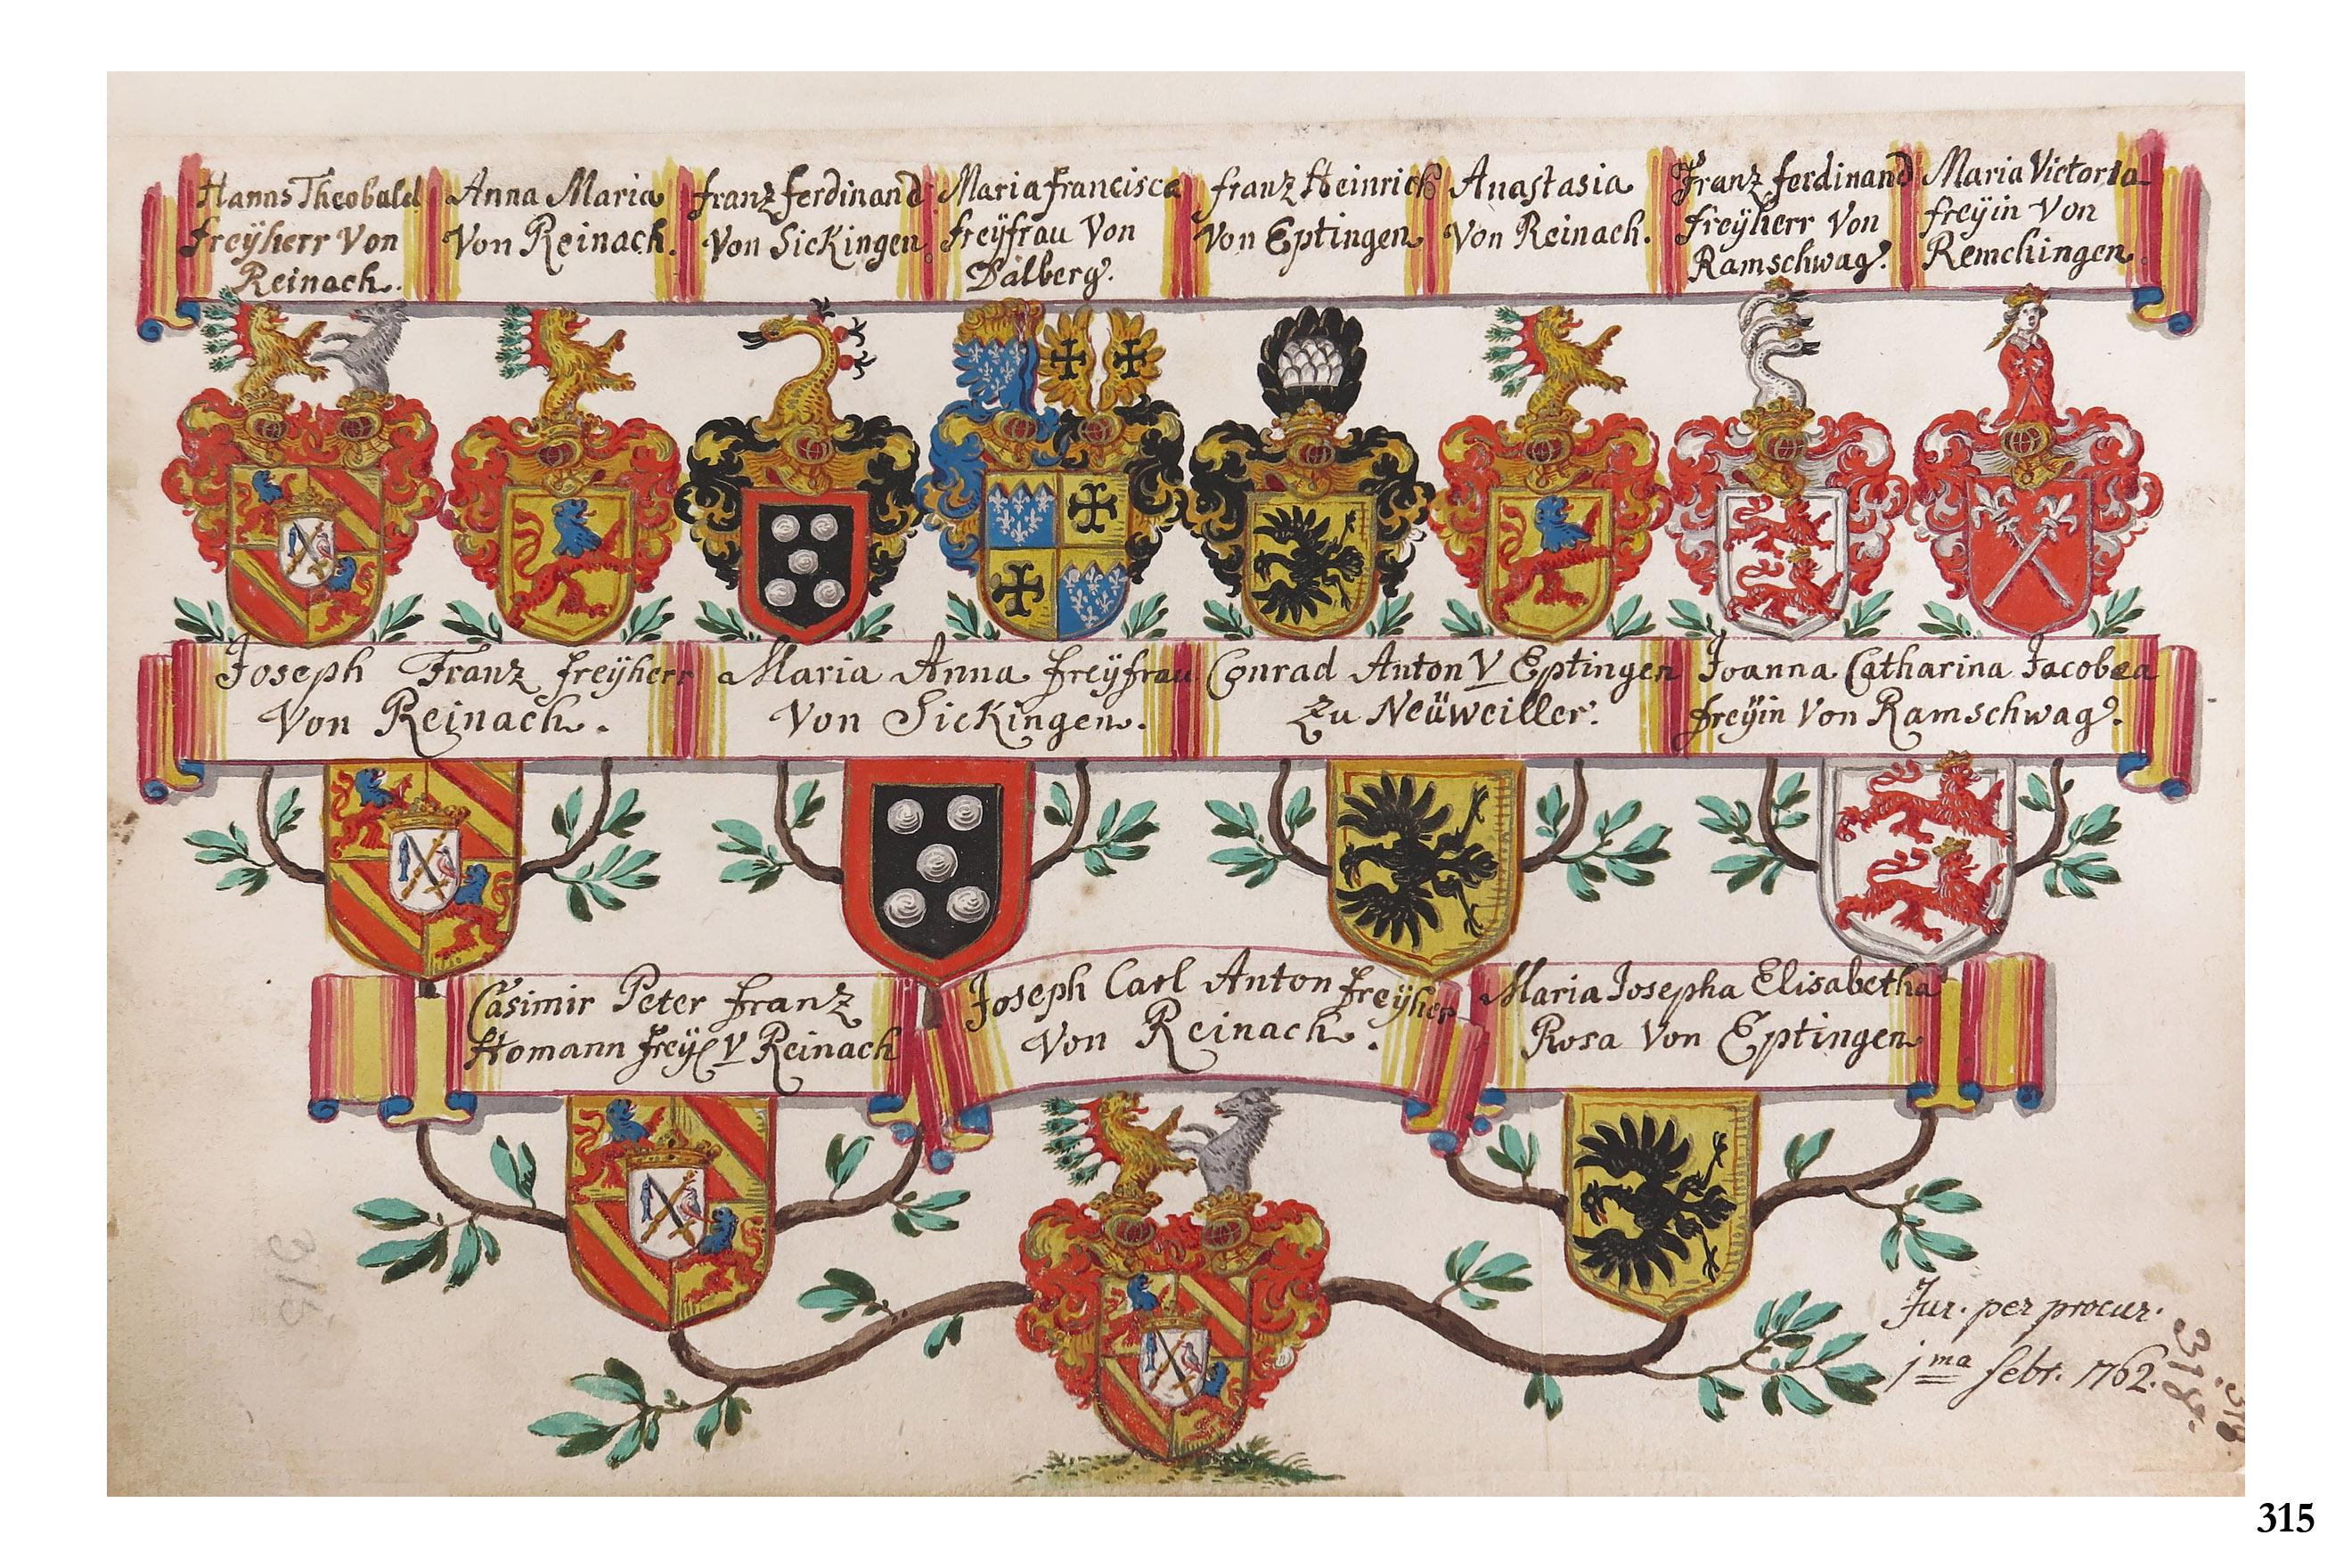 Hanns Theobald
freÿherr Von
Reinach.
Anna Maria
Von Reinach.
franz ferdinand
Von Sickingen.
Maria francisca
freÿfrau Von
Dalberg.
franz Heinrich
Von Eptingen
Anastasia
Von Reinach.
Franz ferdinand
freÿherr Von
Ramschwag.
Maria Victoria
freÿin Von
Remchingen.
Joseph Franz freÿherr
Von Reinach.
Maria Anna freÿfrau
Von Sickingen.
Conrad Anton V Eptingen
Zu Neüweiller.
Joanna Catharina Jacobea
freÿin Von Ramschwag.
Casimir Peter franz
Homann freÿ V Reinach
Joseph Carl Anton freÿher
Von Reinach.
Maria Josepha Elisabetha
Rosa Von Eptingen
Jur. per procur.
1ma febr. 1762.
318.
318.
315
315